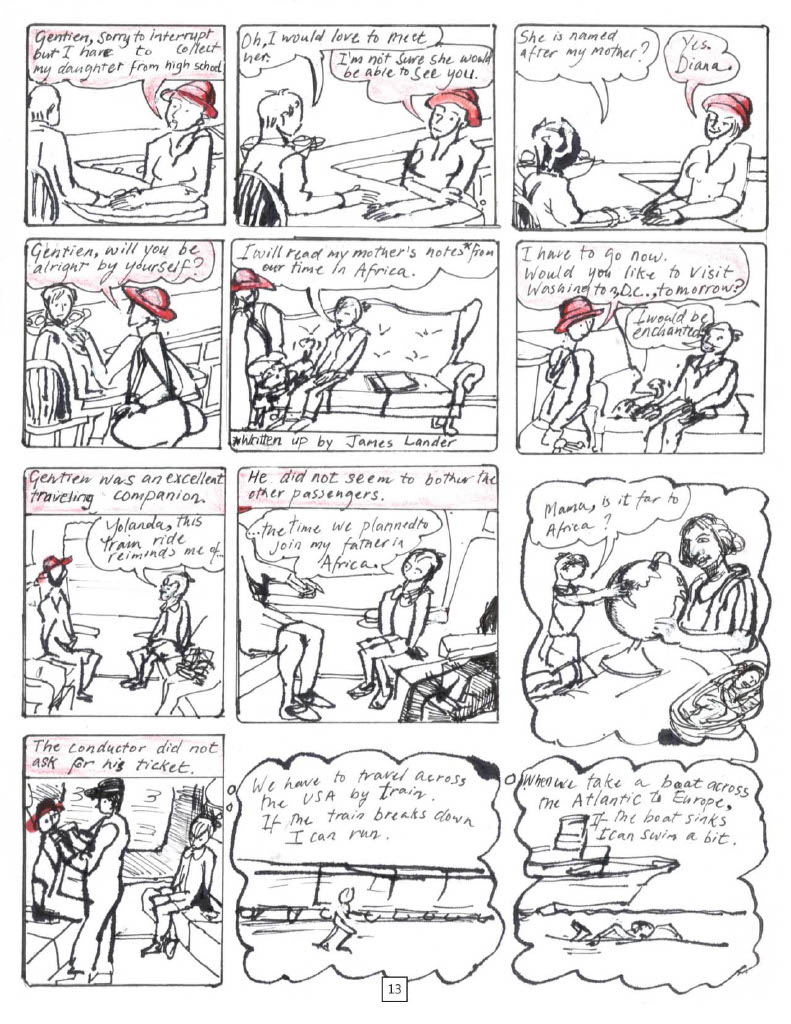 Gentien, sorry to interrupt
but I have to collect
my daughter from high school
Oh, I would love to meet
her.
I'm not sure she would
be able to see you.
She is named
after my mother?
Yes.
Diana.
Gentien, will you be
alright by yourself?
I will read my mother's notes* from
our time in Africa.
*Written up by James Lander
I have to go now.
Would you like to visit
Washington D.C., tomorrow?
I would be
enchanted
Gentien was an excellent
traveling companion.
Yolanda, this
train ride
reiminds me of..
He did not seem to bother the
other passengers.
...the time we planned to
join my father in
Africa.
Mama, is it far to
Africa?
The conductor did not
ask for his ticket.
We have to travel across
the USA by train.
If the train breaks down
I can run.
When we take a boat across
the Atlantic to Europe,
If the boat sinks
I can swim a bit.
13